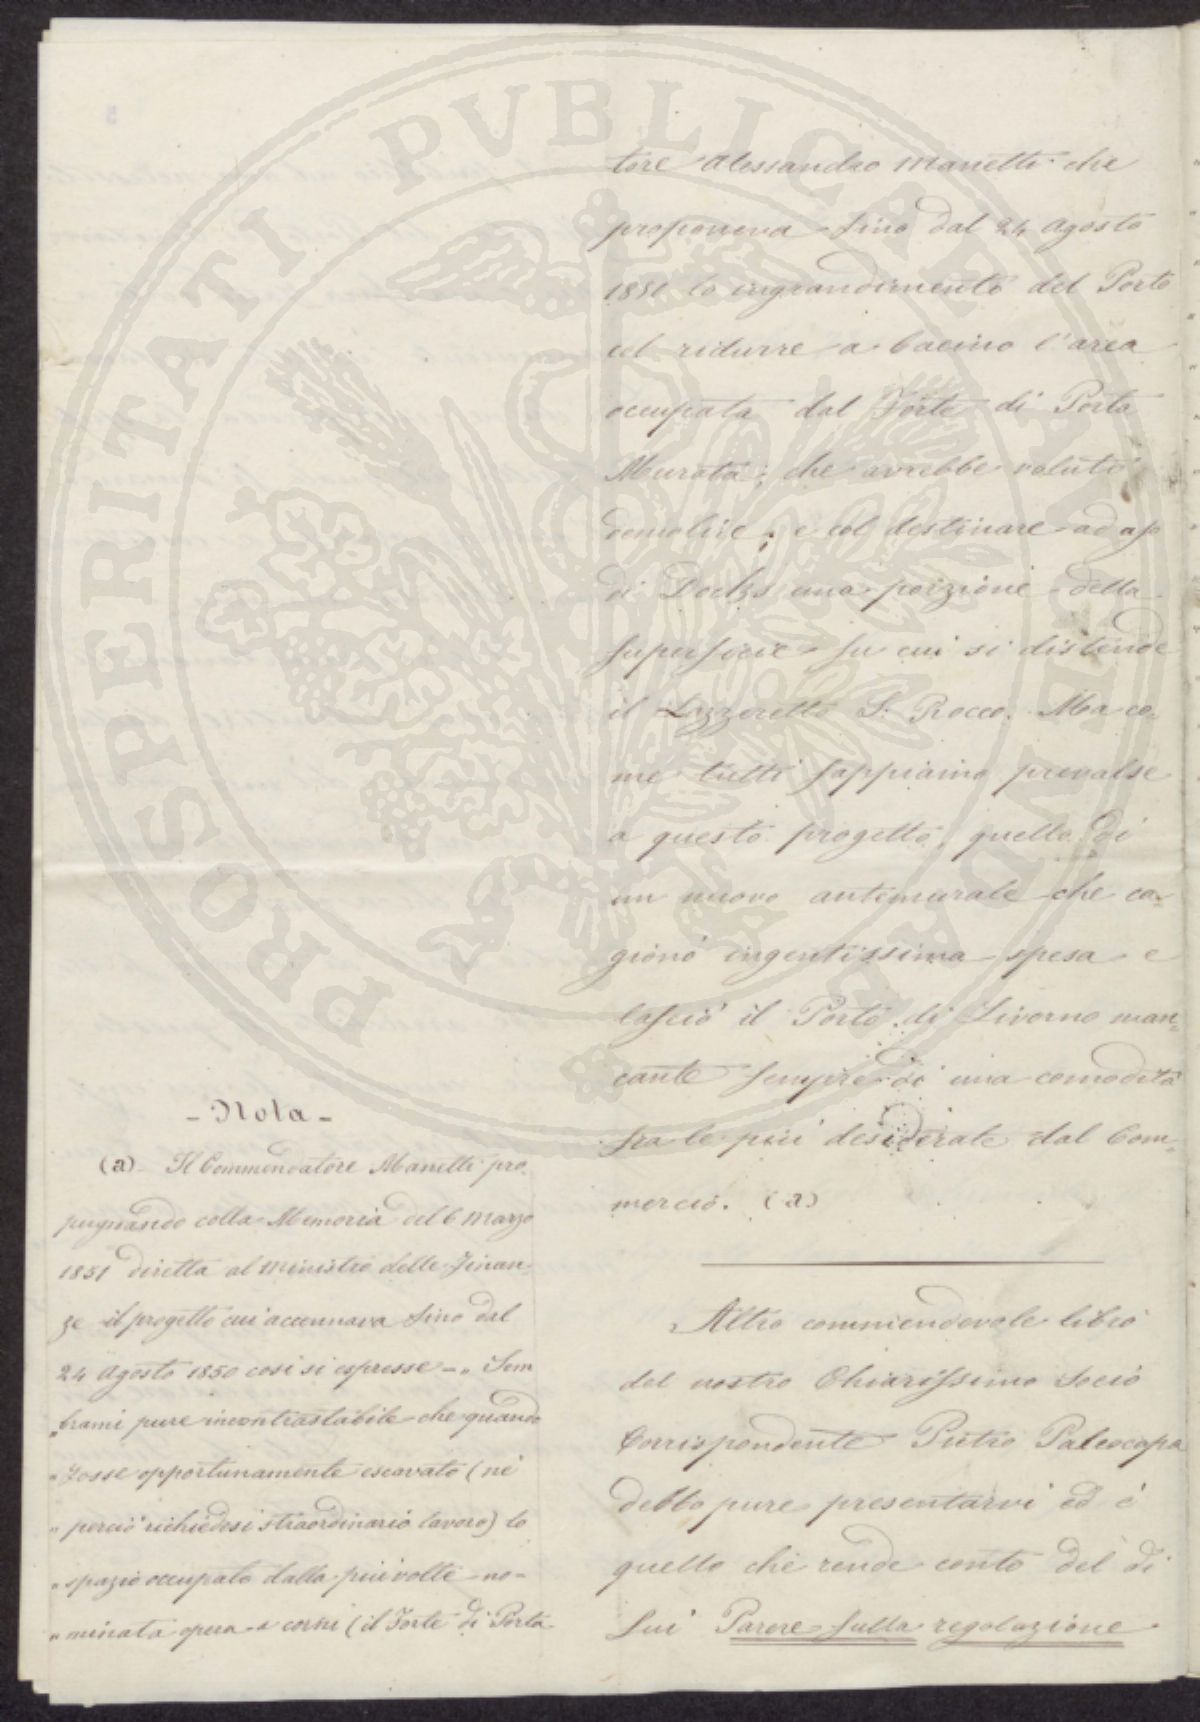 tore Alessandro Manetti che
proponeva sino dal 24 Agosto
1850 lo ingrandimento del Porto
col ridurre a bacino l'area
occupata dal Forte di Porta
Murata, che avrebbe voluto
demolire; e col destinare ad uso
di Docks una porzione della
superficie su cui si distende
il Lazzeretto S. Rocco. Ma co-
me tutti sappiamo prevalse
a questo progetto, quello di
un nuovo antemurale che ca-
gionò ingentissima spesa e
lasciò il Porto di Livorno man-
cante sempre di una comodità
fra le più desiderate dal Com-
mercio. (a)
Altro commendevole libro
del nostro Chiarissimo Socio
Corrispondente Pietro Paleocapa
debbo pure presentarvi ed è
quello che rende conto del di
Lui Parere sulla regolazione
- Nota -
(a) Il Commendatore Manetti pro-
pugnando colla Memoria del 6 Marzo
1851 diretta al Ministro delle Finan-
ze il progetto cui accennava sino dal
24 Agosto 1850 così si espresse - „ Sem
„ brami pure incontrastabile che quando
„ fosse opportunamente escavato (nè
„ perciò richiedesi straordinario lavoro) lo
„ spazio occupato dalla più volte no-
„ minata opera a corni (il Forte di Porta
PROSPERITATI PVBLICAE AVGENDAE